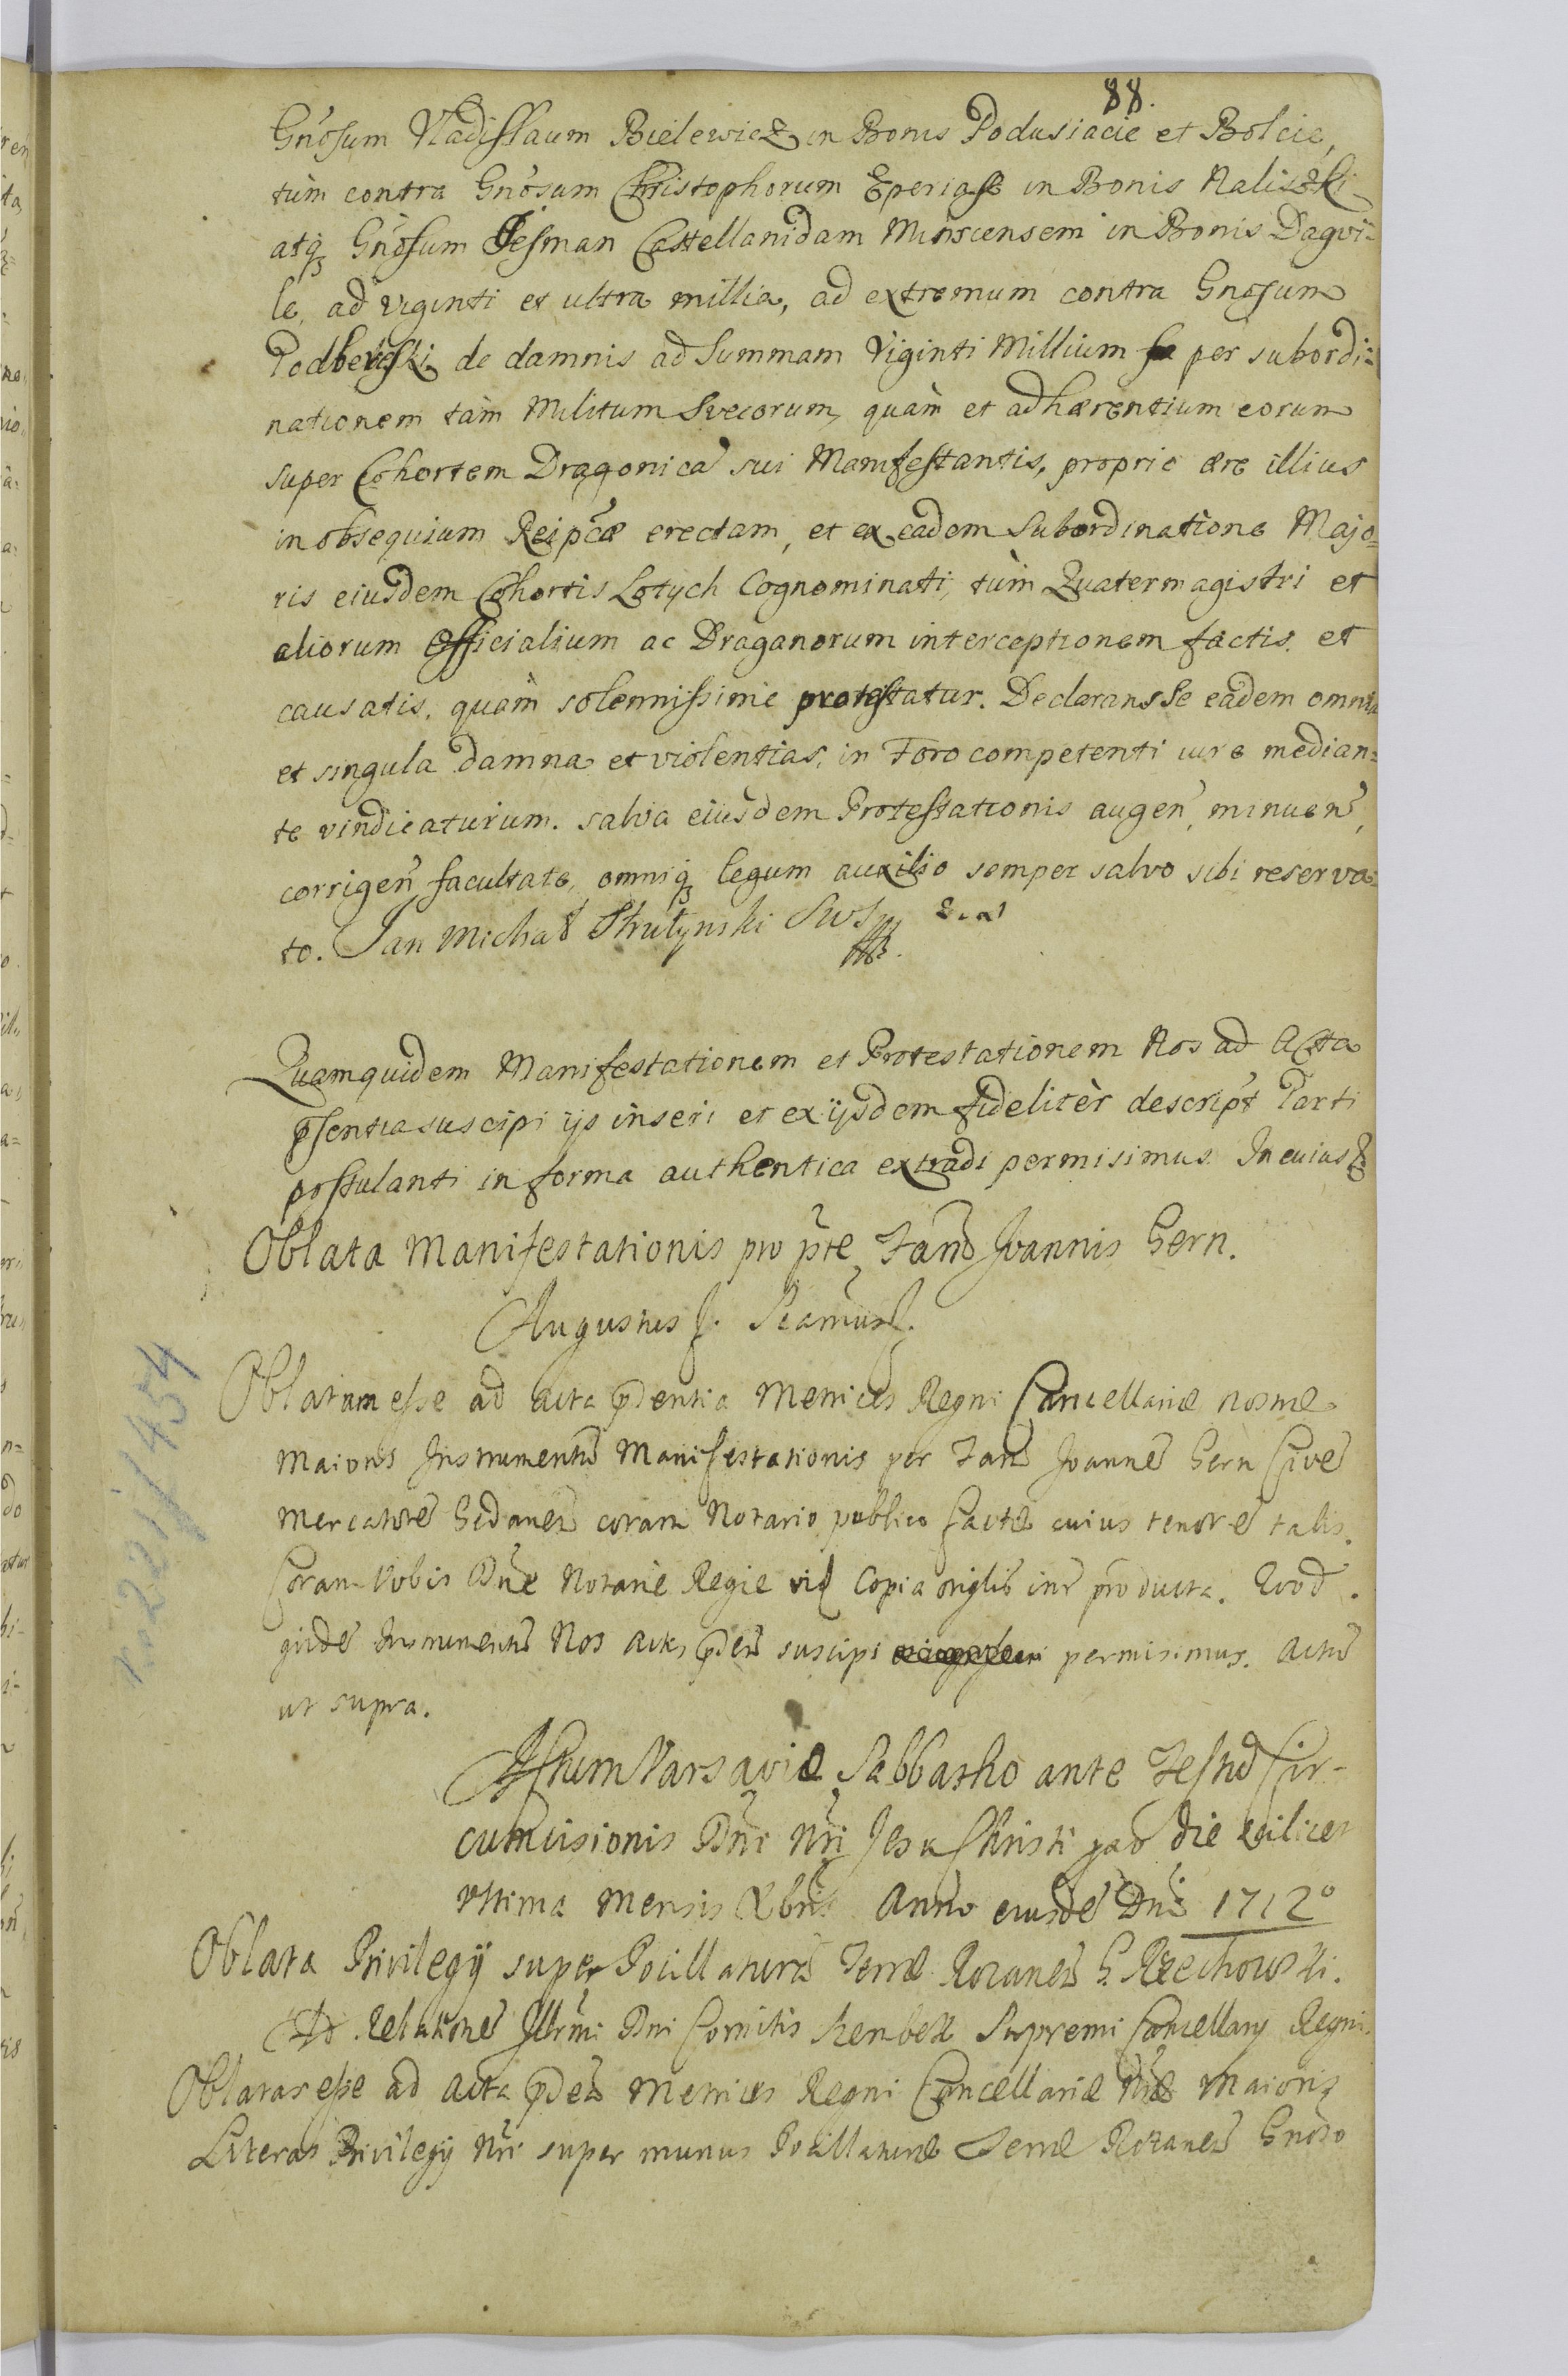 88.
Gnosum Vladislaum Bielewicz in Bonis Podusiacie et Bolcie,
tùm contra Gnosum Christophorum Eperiasz in Bonis Naliszki
atq Gnosum Jesman Castellanidam Minscensem in Bonis Dagvi=
le, ad viginti et ultra millia, ad extremum contra Gnosum
Podbereski de damnis ad Summam Viginti Millium per subordi=
nationem tàm Militum Svecorum, quàm et adhærentium eorum
super Cohortem Dragonica sui Manifestantis, proprio ære illius
in obsequium Reipcæ erectam, et ex eadem Subordinatione Majo=
ris eiusdem Cohortis Lotych Cognominati, tùm Quatermagistri et
aliorum Officialium ac Draganorum interceptionem factis et
causatis, quàm solennissime protestatur. Declarans Se eadem omnia
et singula damna et violentias, in Foro competenti iure median=
te vindicaturum. salva eiusdem Protestationis augen, minuen,
corrigen facultate, omniq legum auxilio semper salvo sibi reserva=
to. Jan Michał Strutynski
Quamquidem Manifestationem et Protestationem Nos ad Acta
psentia suscipi ijs inseri et ex ijsdem fideliter descript Parti
postulanti in forma authentica extradi permisimus. In cuius &
Oblata Manifestationis pro pte Fam Joannis Gern.
Augustus S.
Oblatum esse ad acta pdentia Metrices Regni Cancellariæ nostræ
maioris Instrumentu Manifestationis per Fam Joanne Gern Cive
Mercatore Gedanen coram Notario publico factu cuius tenore talis.
Coram Vobis Dne Notarie Regie vid Copia origlis inr producta. Quod
quide Instrumentu Nos actis pden suscipi permisimus. Actu
ut supra.
Actum Varsaviæ Sabbatho ante Festu Cir-
cumcisionis Dni Nri Jesu Christi pxo die scilicet
ultima mensis Xbris Anno eiusde Dni 1712°
Oblata Privilegij super Pocillatura Terræ Rozanen G. Rzechowski.
Ad Relatione Illrmi Dni Comitis Szenbek Supremi Cancellarij Regni.
Oblatas esse ad acta pden Metrices Regni Cancellariæ Nræ Maioris
Literas Privilegij Nri super munus Pocillaturæ Terræ Rozanen Gnoso